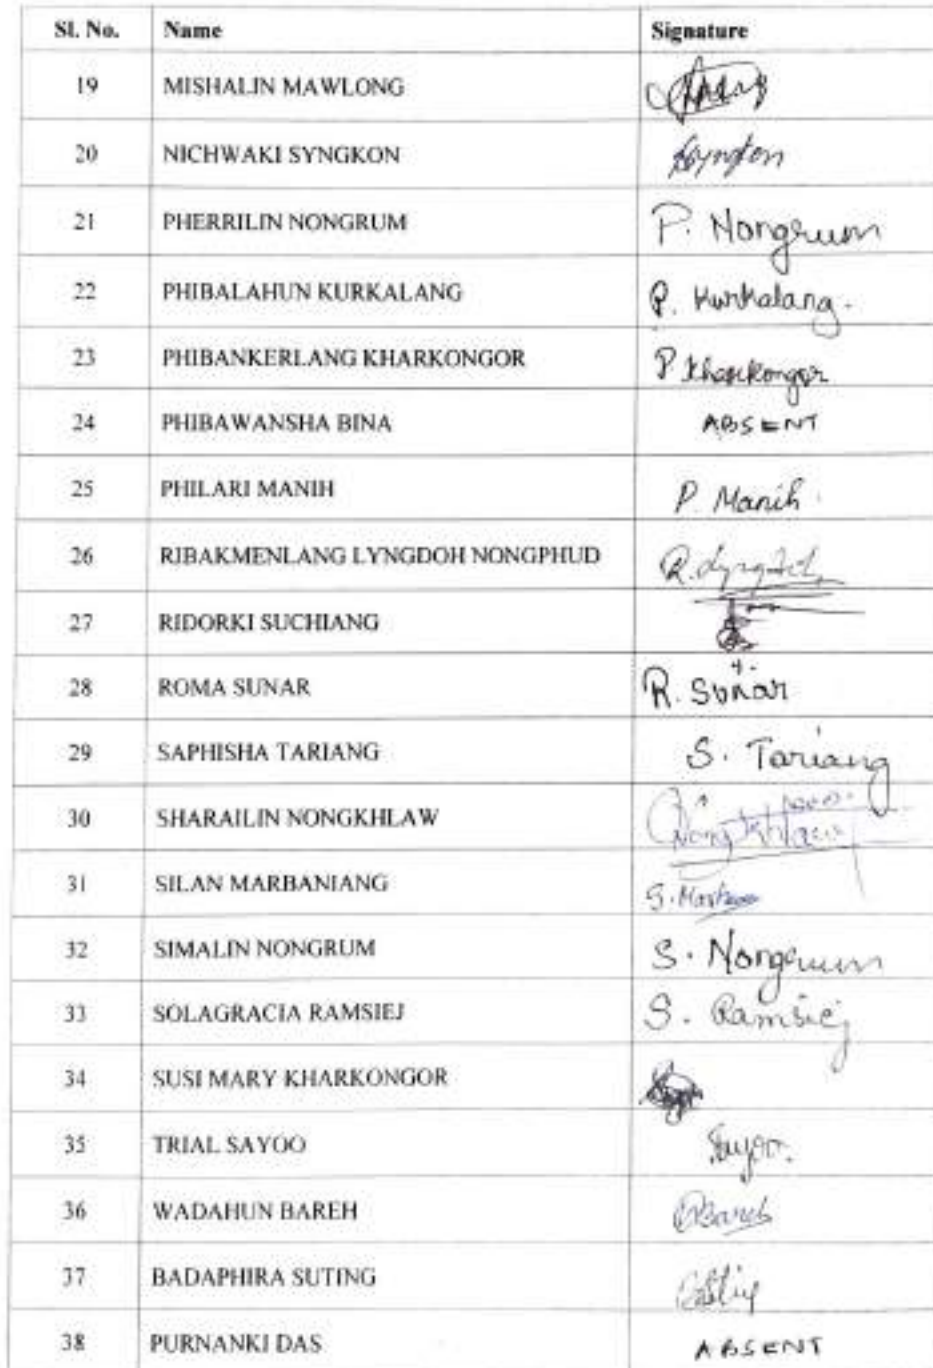 Sl. No. Name Signature
19 MISHALIN MAWLONG
20 NICHWAKI SYNGKON Syngkon
21 PHERRILIN NONGRUM P. Nongrum
22 PHIBALAHUN KURKALANG P. Kurkalang.
23 PHIBANKERLANG KHARKONGOR P Kharkongor
24 PHIBAWANSHA BINA ABSENT
25 PHILARI MANIH P. Manih.
26 RIBAKMENLANG LYNGDOH NONGPHUD
27 RIDORKI SUCHIANG
28 ROMA SUNAR R. Sunar
29 SAPHISHA TARIANG S. Tariang
30 SHARAILIN NONGKHLAW Nongkhlaw
31 SILAN MARBANIANG
32 SIMALIN NONGRUM S. Nongrum
33 SOLAGRACIA RAMSIEJ S. Ramsiej
34 SUSI MARY KHARKONGOR
35 TRIAL SAYOO Sayoo.
36 WADAHUN BAREH Bareh
37 BADAPHIRA SUTING
38 PURNANKI DAS ABSENT